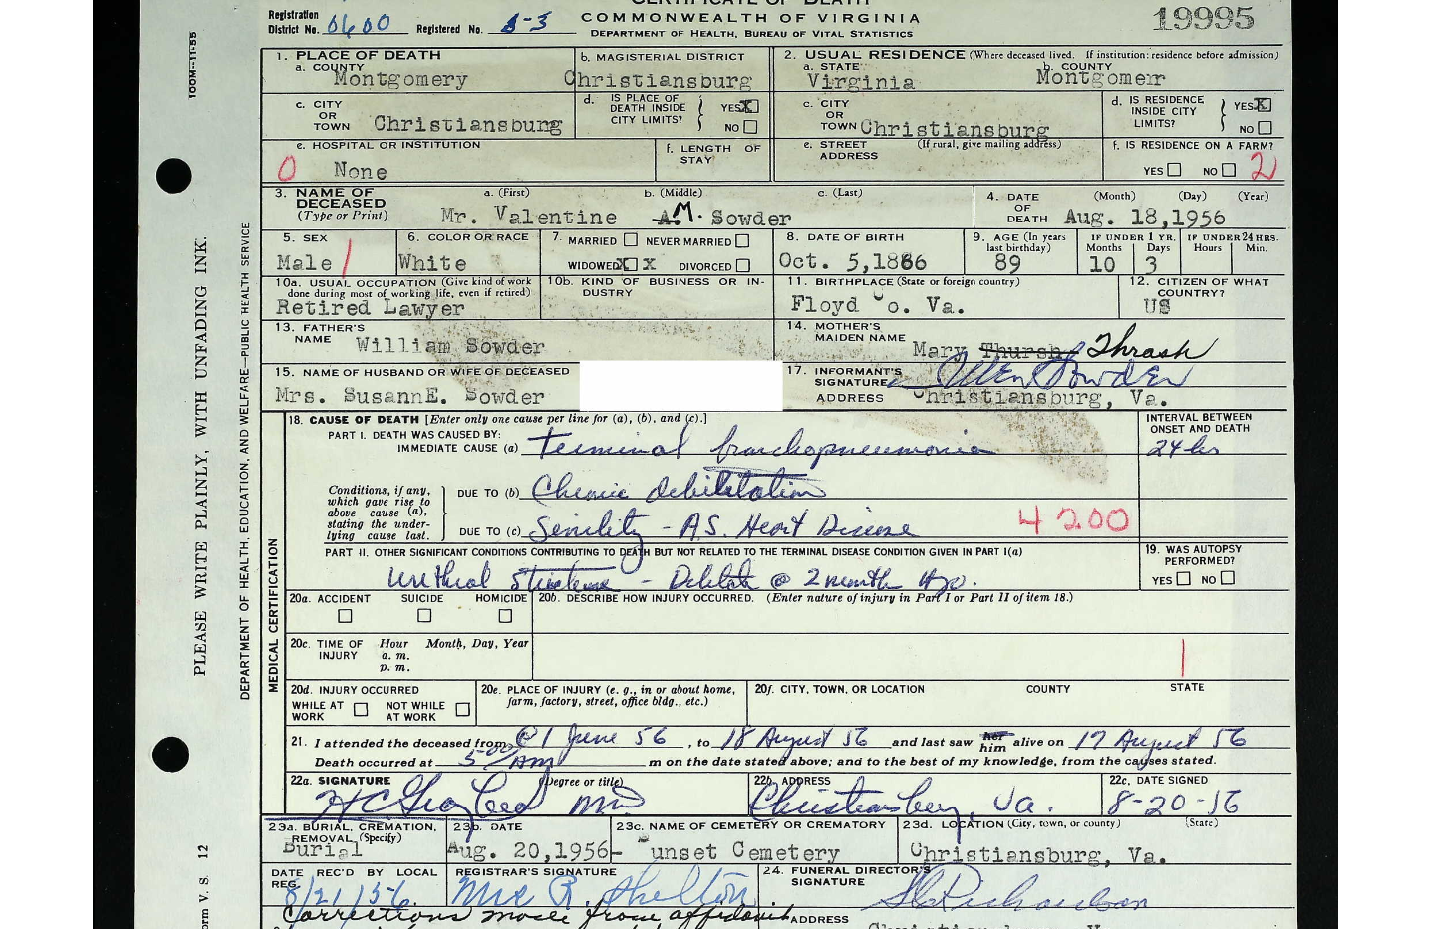 CERTIFICATE OF DEATH
COMMONWEALTH OF VIRGINIA
DEPARTMENT OF HEALTH, BUREAU OF VITAL STATISTICS
Registration District No. 0600 Registered No. 8-3
19995
100M—11-55
PLEASE WRITE PLAINLY, WITH UNFADING INK.
DEPARTMENT OF HEALTH, EDUCATION, AND WELFARE—PUBLIC HEALTH SERVICE
1. PLACE OF DEATH
a. COUNTY Montgomery
b. MAGISTERIAL DISTRICT Christiansburg
2. USUAL RESIDENCE (Where deceased lived. If institution: residence before admission)
a. STATE Virginia
b. COUNTY Montgomerr
c. CITY OR TOWN Christiansburg
d. IS PLACE OF DEATH INSIDE CITY LIMITS? YES X NO
c. CITY OR TOWN Christiansburg
d. IS RESIDENCE INSIDE CITY LIMITS? YES X NO
e. HOSPITAL OR INSTITUTION
0 None
f. LENGTH OF STAY
e. STREET ADDRESS (If rural, give mailing address)
f. IS RESIDENCE ON A FARM?
YES NO 2
3. NAME OF DECEASED (Type or Print)
a. (First) b. (Middle) c. (Last)
Mr. Valentine A. M. Sowder
4. DATE OF DEATH (Month) (Day) (Year)
Aug. 18,1956
5. SEX
Male 1
6. COLOR OR RACE
White
7. MARRIED NEVER MARRIED
WIDOWED X X DIVORCED
8. DATE OF BIRTH
Oct. 5,1866
9. AGE (In years last birthday)
89
IF UNDER 1 YR. Months Days
10 3
IF UNDER 24 HRS. Hours Min.
10a. USUAL OCCUPATION (Give kind of work done during most of working life, even if retired)
Retired Lawyer
10b. KIND OF BUSINESS OR INDUSTRY
11. BIRTHPLACE (State or foreign country)
Floyd Co. Va.
12. CITIZEN OF WHAT COUNTRY?
US
13. FATHER'S NAME William Sowder
14. MOTHER'S MAIDEN NAME Mary Thursh Thrash
15. NAME OF HUSBAND OR WIFE OF DECEASED
Mrs. SusannE. Sowder
17. INFORMANT'S SIGNATURE Sowder
ADDRESS Christiansburg, Va.
18. CAUSE OF DEATH [Enter only one cause per line for (a), (b), and (c).]
INTERVAL BETWEEN ONSET AND DEATH
PART I. DEATH WAS CAUSED BY:
IMMEDIATE CAUSE (a) Terminal bronchopneumonia 24 hrs
Conditions, if any, which gave rise to above cause (a), stating the underlying cause last.
DUE TO (b) Chronic debilitation
DUE TO (c) Senility - A.S. Heart Disease 4200
PART II. OTHER SIGNIFICANT CONDITIONS CONTRIBUTING TO DEATH BUT NOT RELATED TO THE TERMINAL DISEASE CONDITION GIVEN IN PART I(a)
Urethral Stricture - @ 2 months ago.
19. WAS AUTOPSY PERFORMED?
YES NO
MEDICAL CERTIFICATION
20a. ACCIDENT SUICIDE HOMICIDE
20b. DESCRIBE HOW INJURY OCCURRED. (Enter nature of injury in Part I or Part II of item 18.)
20c. TIME OF INJURY Hour Month, Day, Year
a. m.
p. m.
20d. INJURY OCCURRED
WHILE AT WORK NOT WHILE AT WORK
20e. PLACE OF INJURY (e. g., in or about home, farm, factory, street, office bldg., etc.)
20f. CITY, TOWN, OR LOCATION COUNTY STATE
21. I attended the deceased from @ 1 June 56, to 18 August 56 and last saw her him alive on 17 August 56
Death occurred at 5:00 AM m on the date stated above; and to the best of my knowledge, from the causes stated.
22a. SIGNATURE (Degree or title)
MD
22b. ADDRESS
Christiansburg, Va.
22c. DATE SIGNED
8-20-56
23a. BURIAL, CREMATION, REMOVAL (Specify)
Burial
23b. DATE
Aug. 20,1956-
23c. NAME OF CEMETERY OR CREMATORY
Sunset Cemetery
23d. LOCATION (City, town, or county) (State)
Christiansburg, Va.
DATE REC'D BY LOCAL REG.
8/21/56
REGISTRAR'S SIGNATURE
Mrs R. Shelton
24. FUNERAL DIRECTOR'S SIGNATURE
Richardson
Corrections made from affidavit
ADDRESS
Form V. S. 12